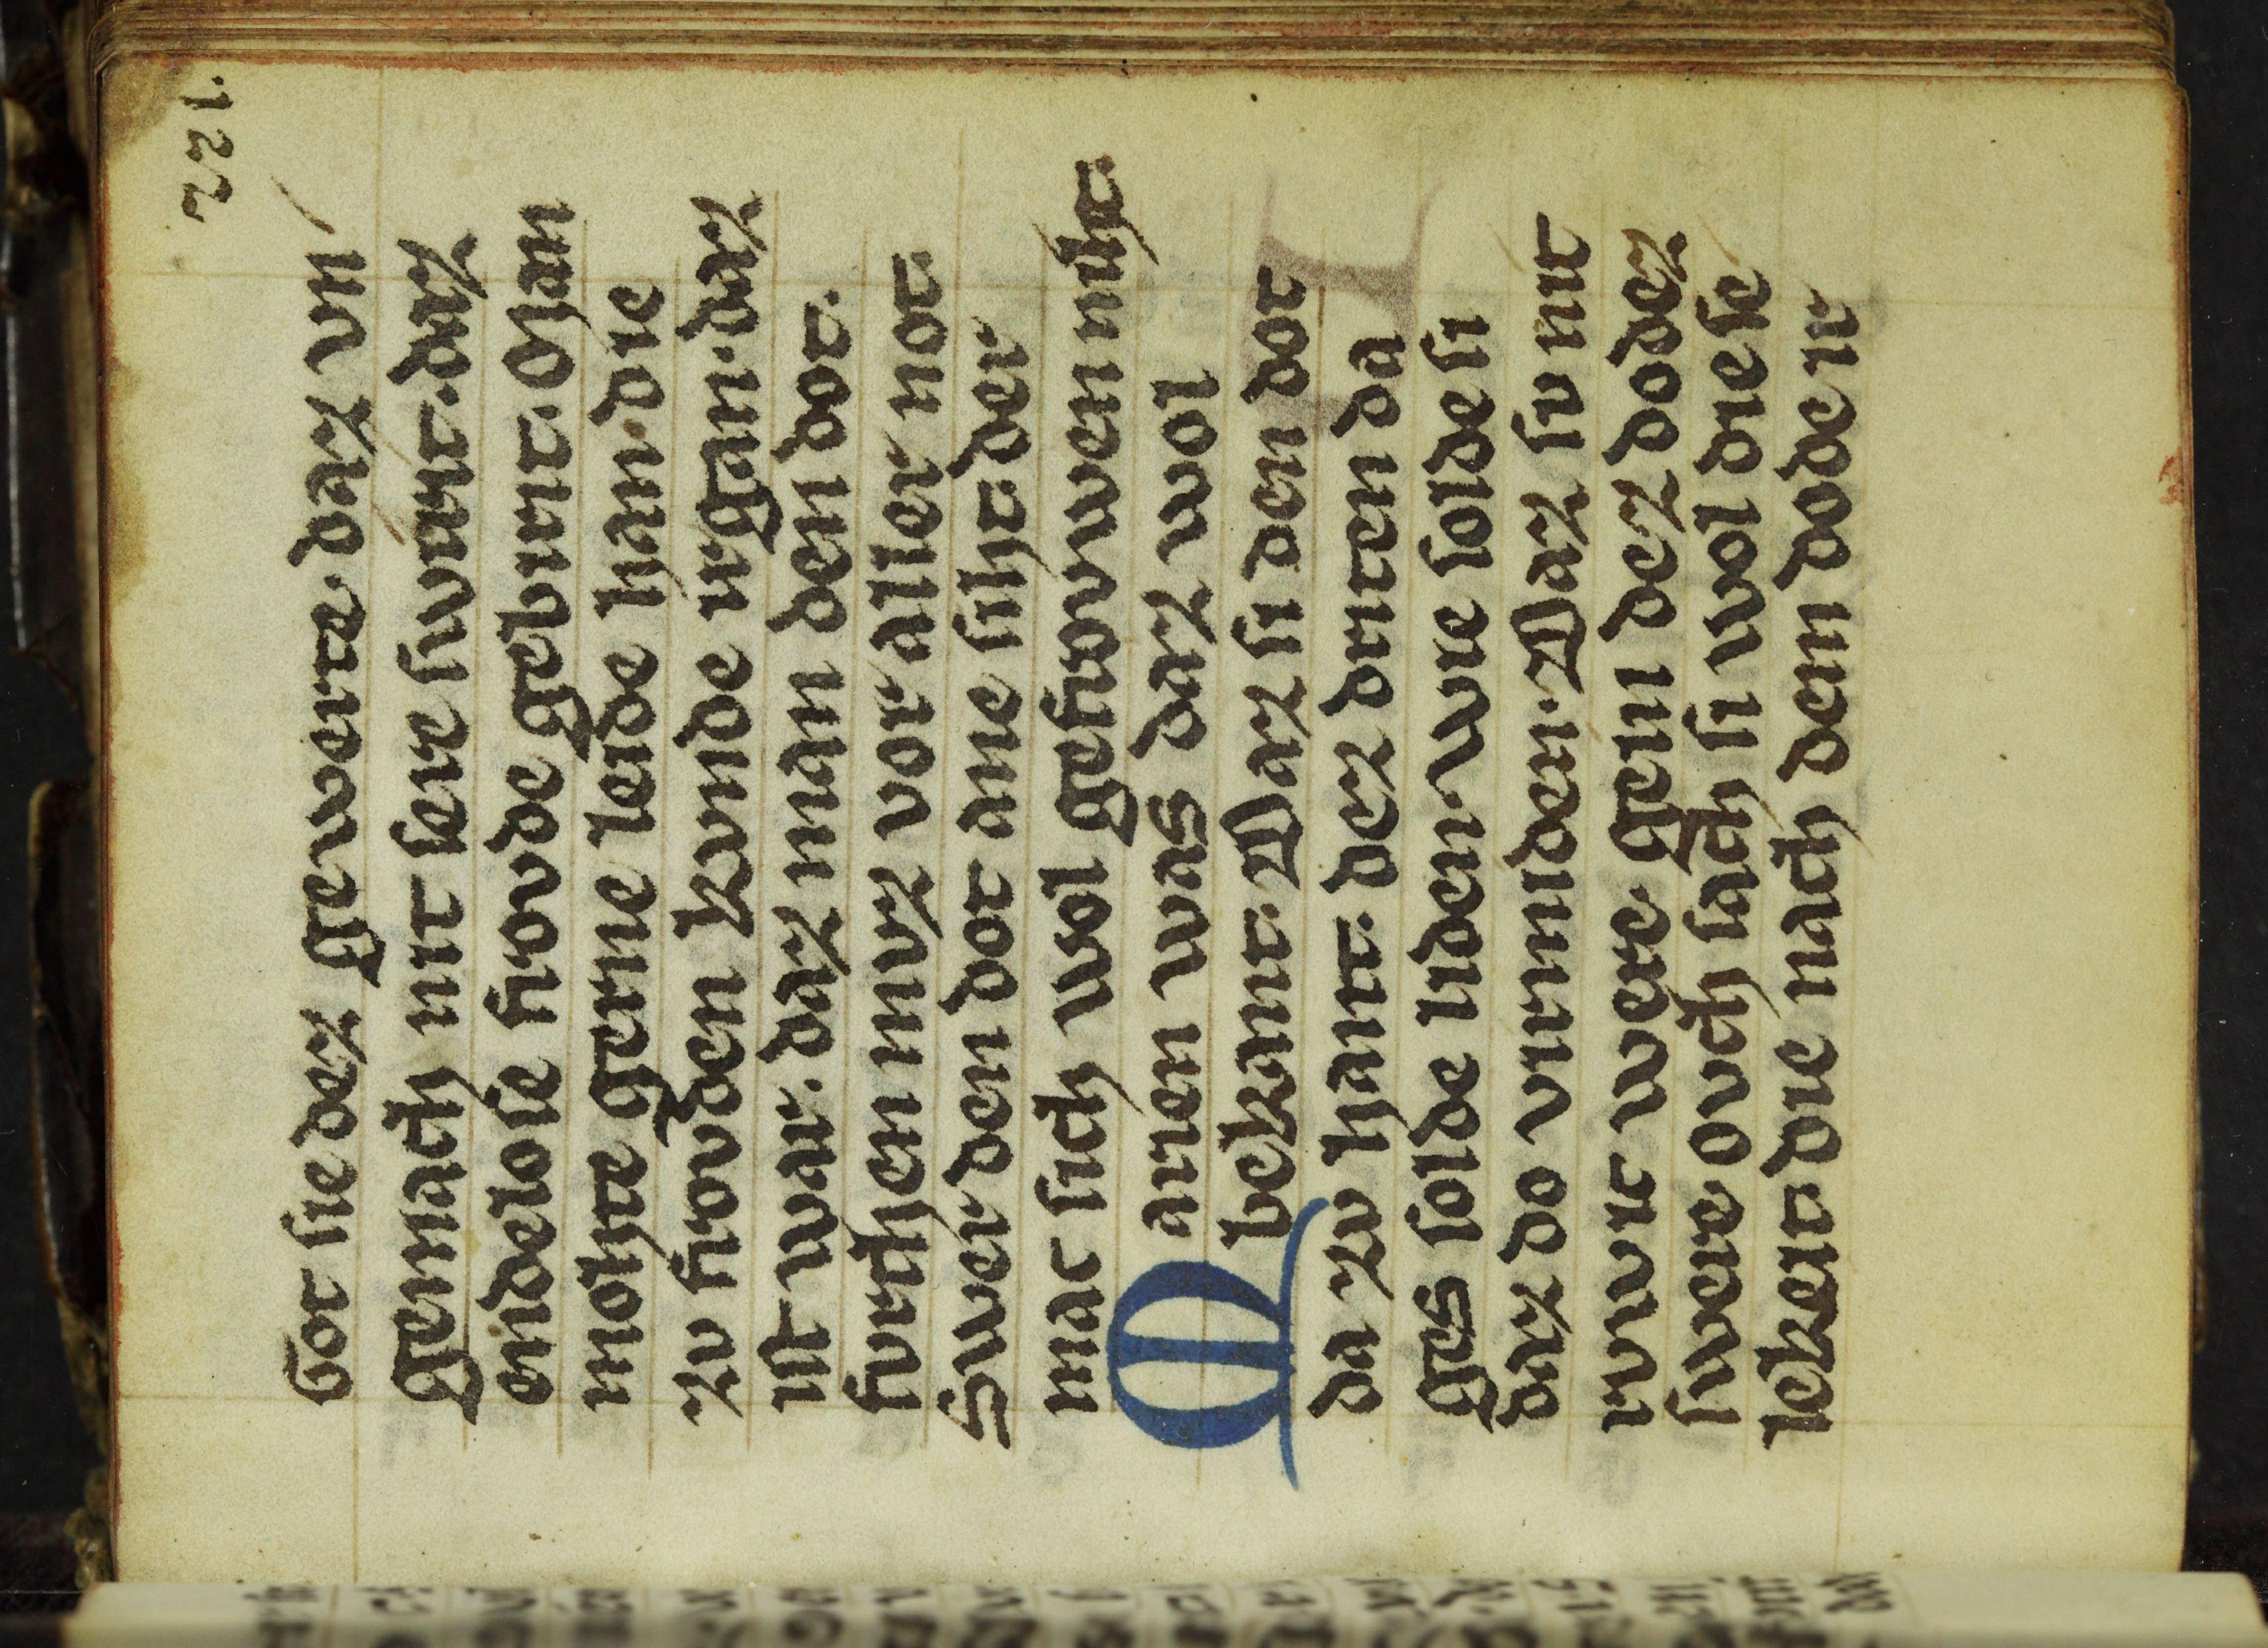 221.
Got sie dez gewerte. daz vn
gemach nit sere swart. daz
endelose frovde gebirt. Man
mohte gerne leide han. die
zv frovden kvnde irgan. daz
ist war. daz man den dot.
furchen mvz vor aller not.
Swer den dot ane siht. der
mac sich wol gefrowen niht.
Marien was daz wol
bekant. Daz si den dot
da zv hant. dez driten da
ges solde liden. wie solde si
daz do virmiden. Daz su nit
irvirt were. gein dez dodez
swere ovch sach si wol die se
lekeit. die nach dem dode ir